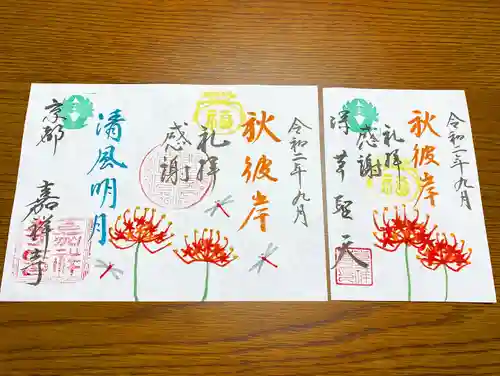 令和二年九月
秋彼岸
礼拝
感謝
清風明月
京都 嘉祥寺
令和二年九月
秋彼岸
礼拝
感謝
福